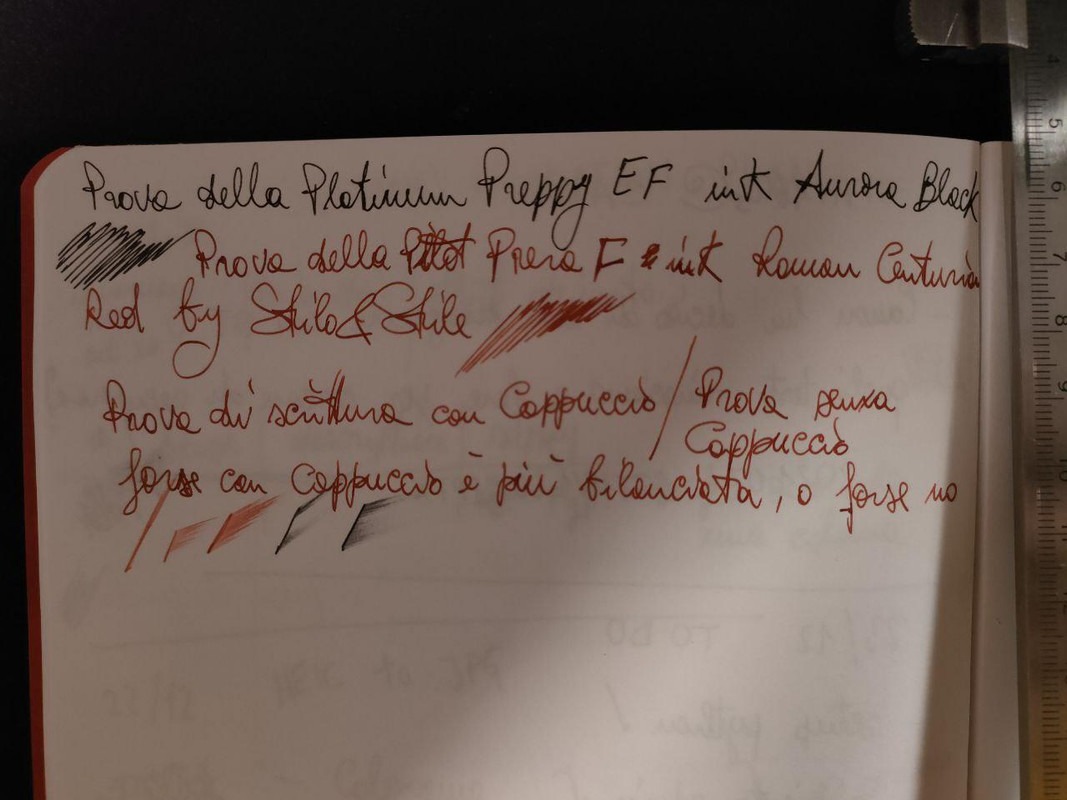 Prova della Platinum Preppy EF ink Aurora Black
Prova della Pilot Prera F ink Roman Centurion
Red by Stilo&Stile
Prova di scrittura con Cappuccio / Prova senza
Cappuccio
forse con Cappuccio è più bilanciata, o forse no
4 5 6 7 8 9 10
TO DO